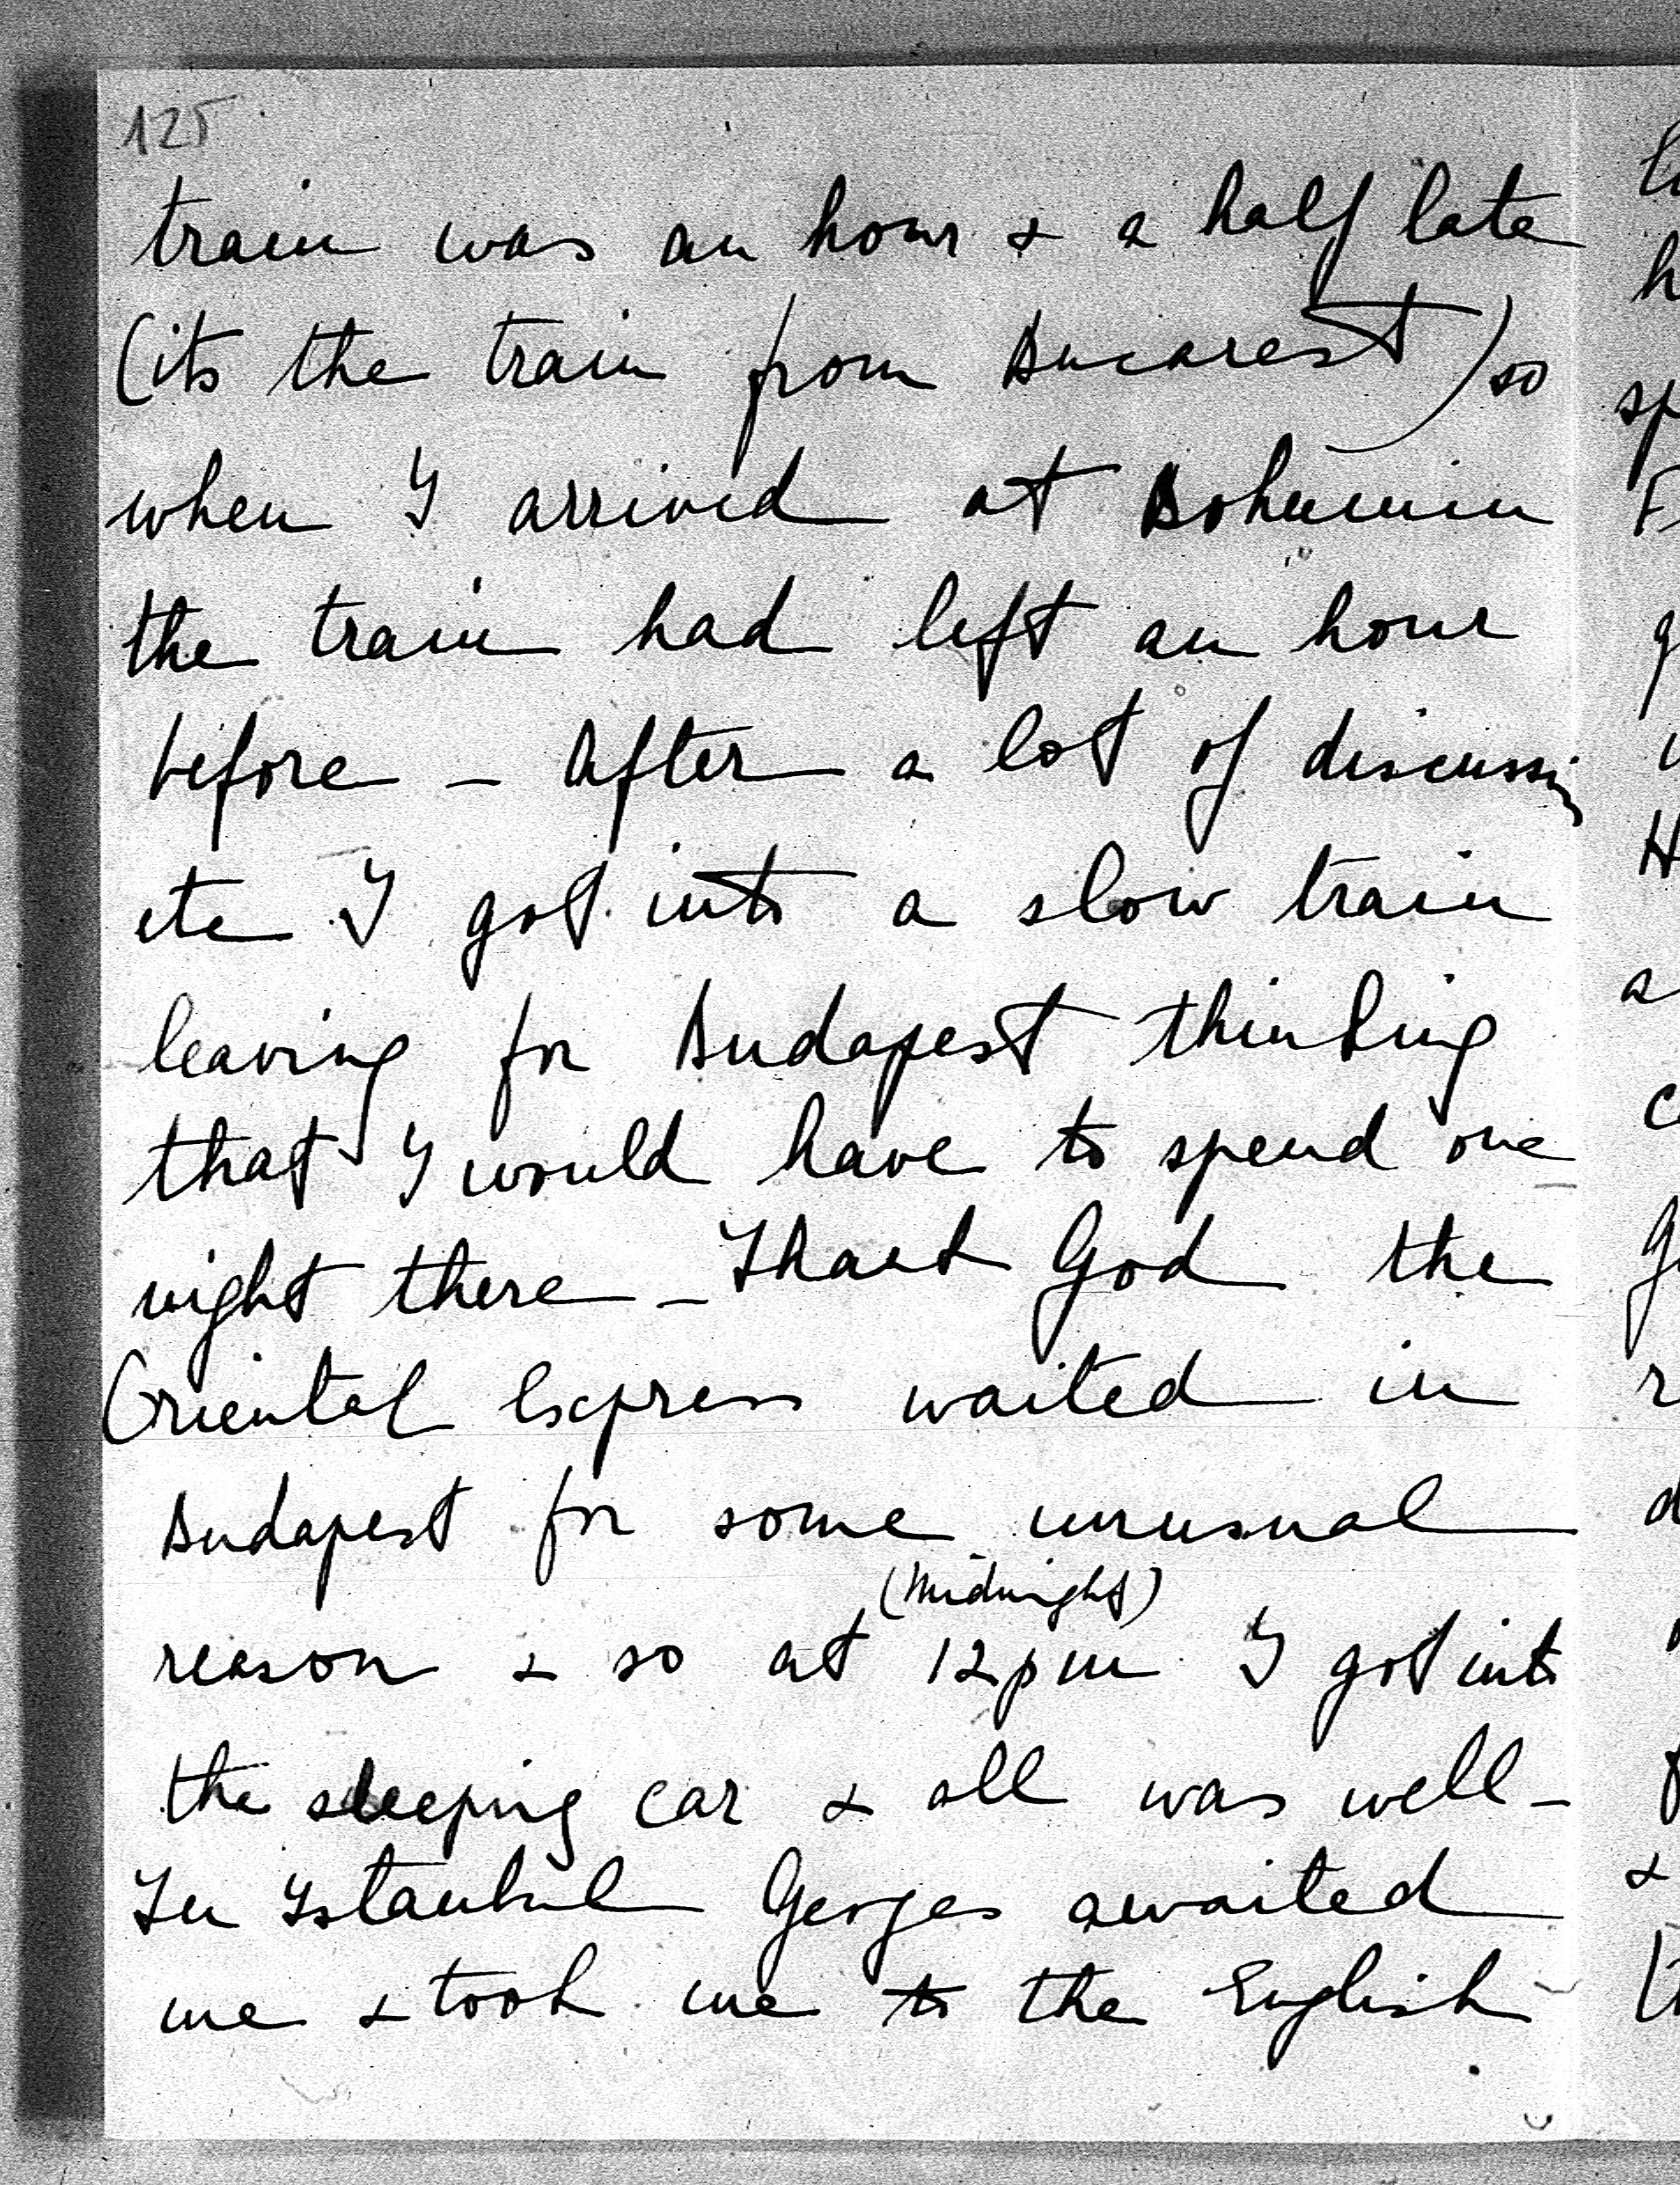 125
train was an hour & a half late
(its the train from Bucarest) so
when I arrived at Bohumin
the train had left an hour
before – After a lot of discussing
etc I got into a slow train
leaving for Budapest thinking
that I would have to spend one
night there – Thank God the
Oriental Express waited in
Budapest for some unusual
(midnight)
reason & so at 12 pm I got into
the sleeping car & all was well –
In Istanbul Georges awaited
me & took me to the English